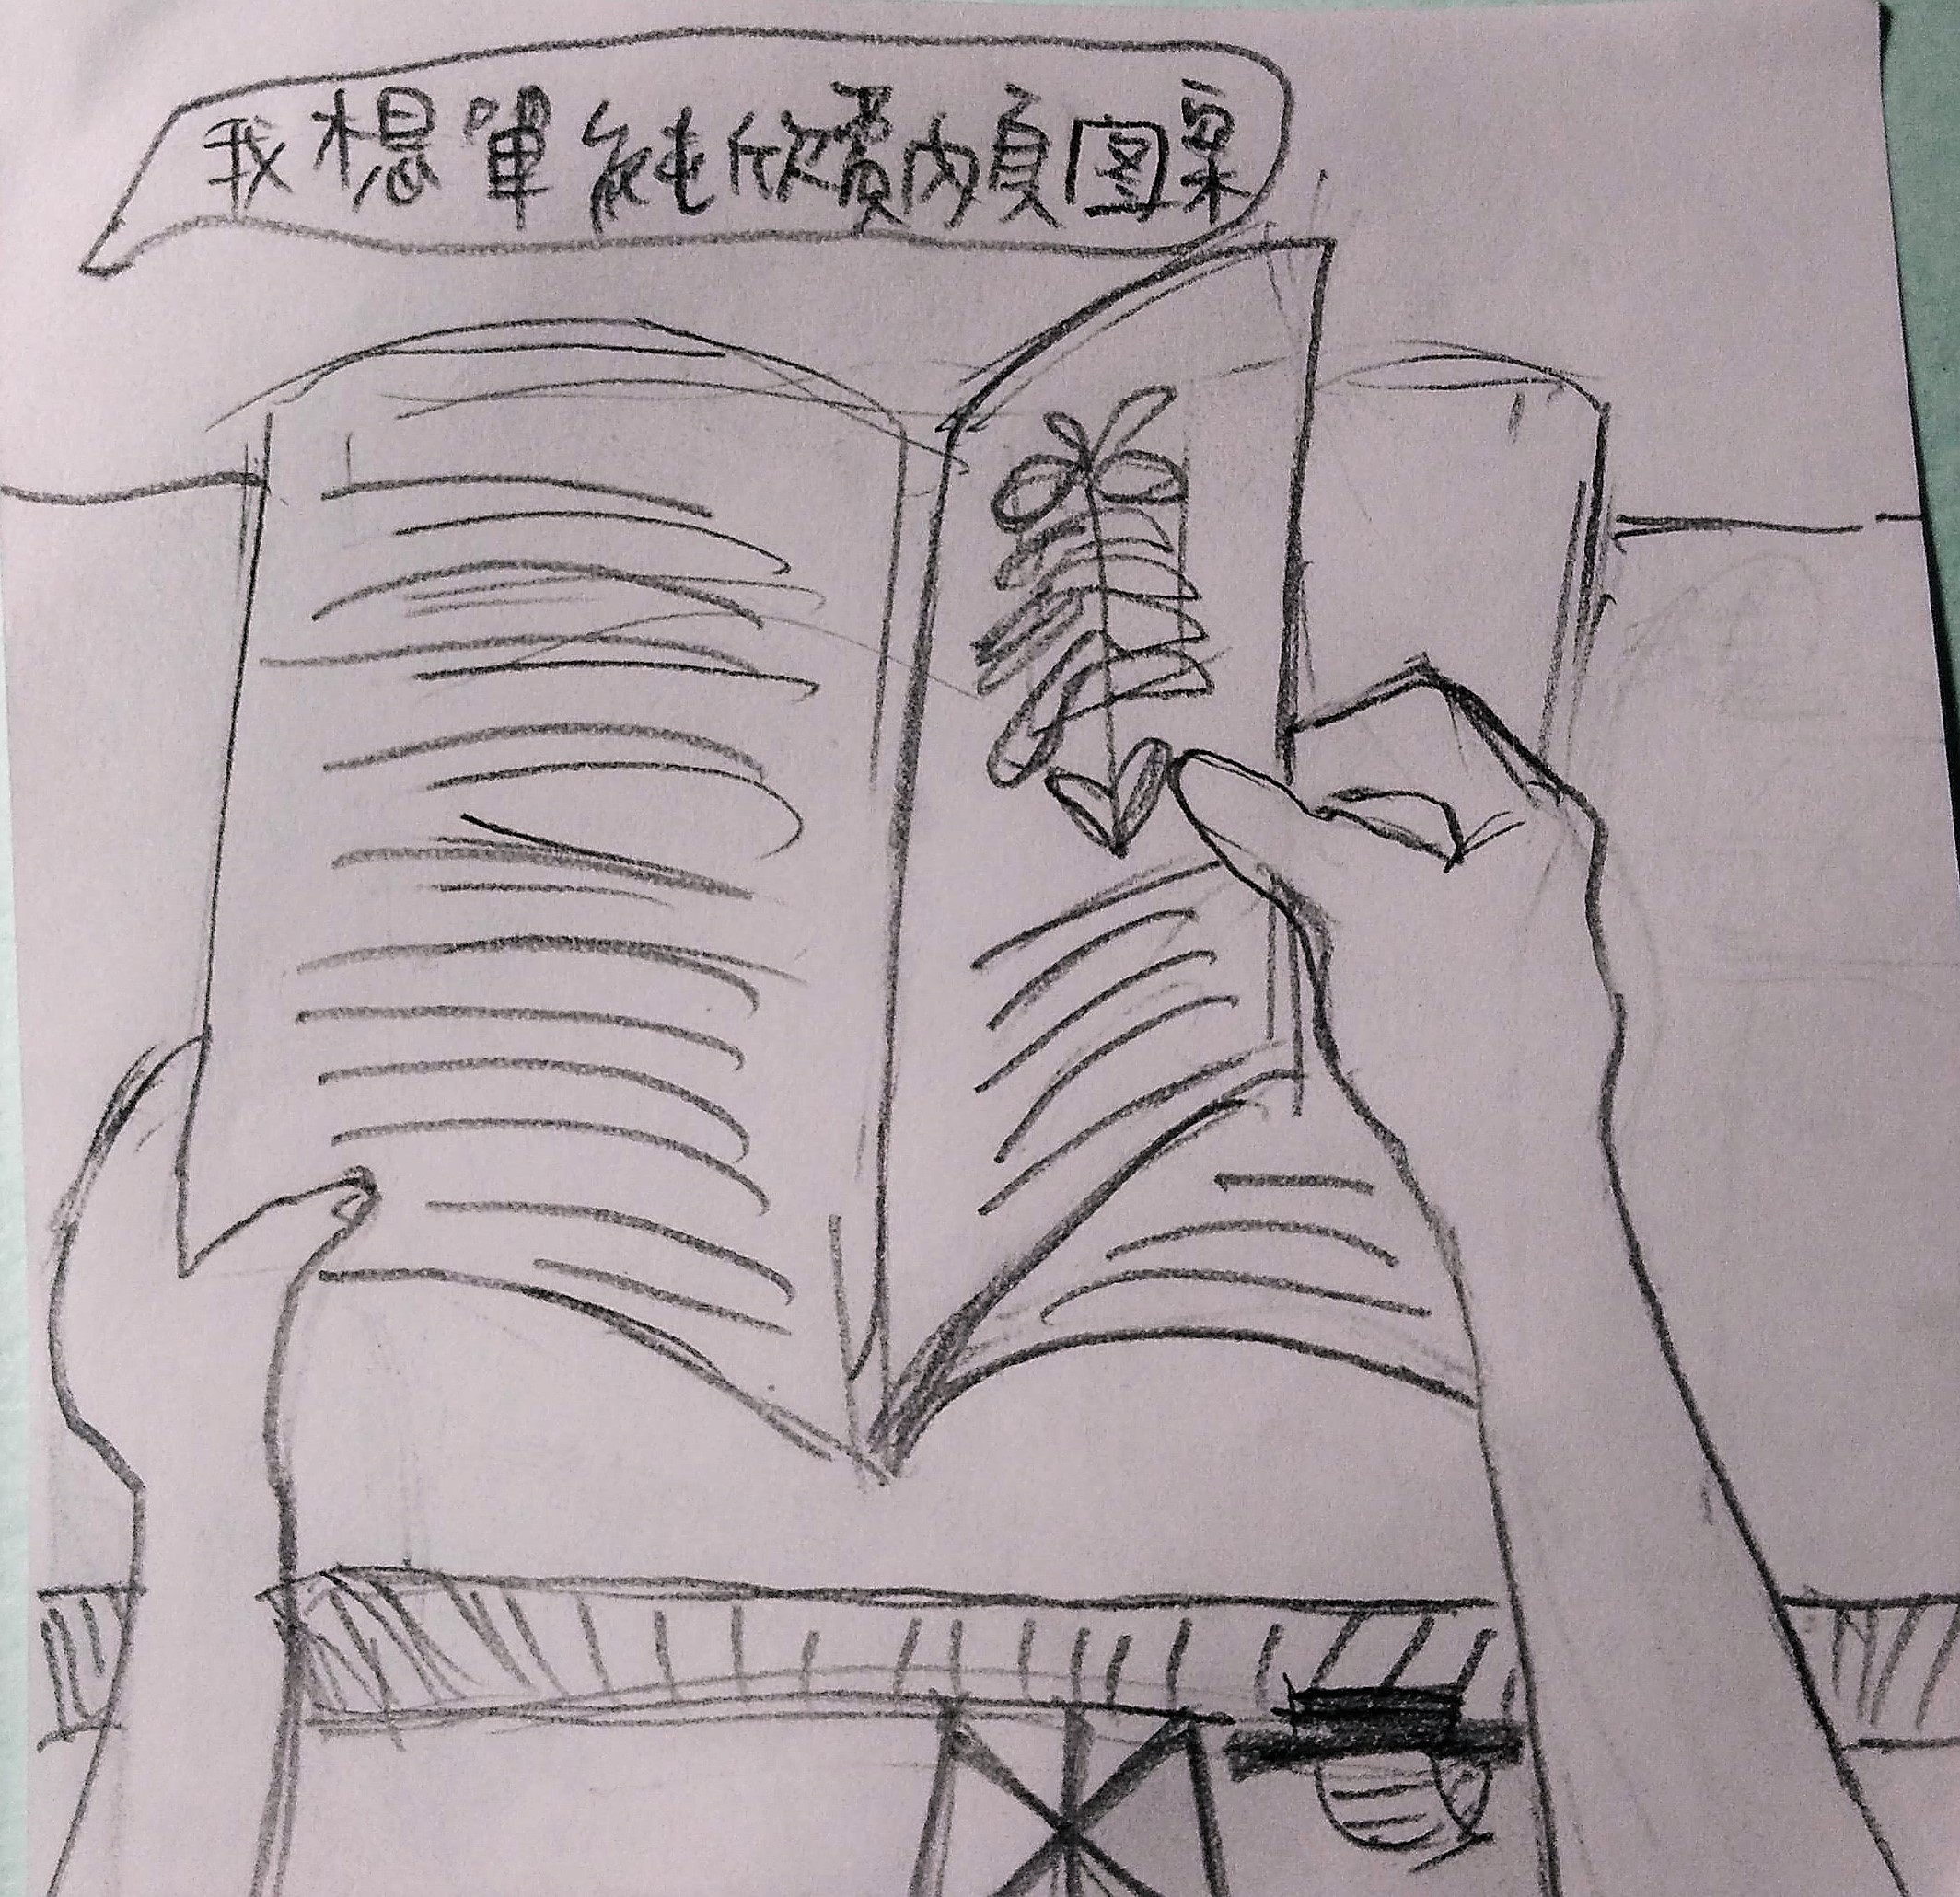 我想單純欣賞內頁图案